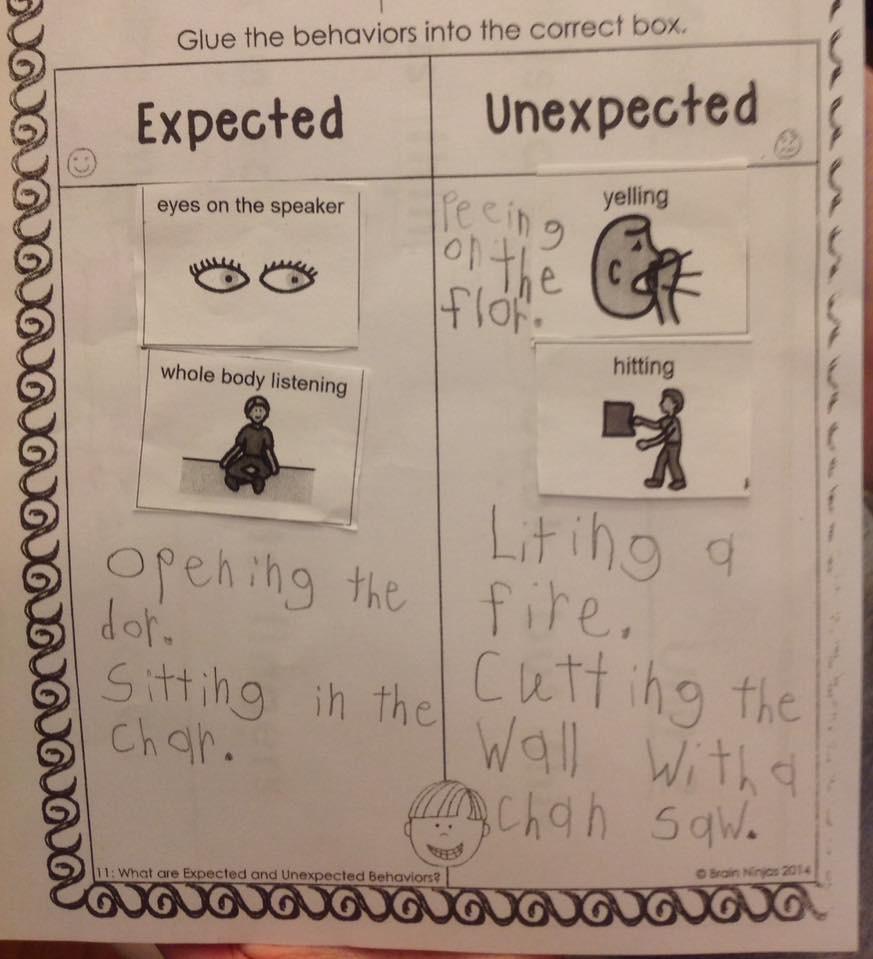 Glue the behaviors into the correct box.
Expected
eyes on the speaker
whole body listening
Opening the
dor.
Sitting in the
Char.
Unexpected
Peeing
on the
flor.
yelling
hitting
Liting a
fire.
Cutting the
Wall With a
Chan Saw.
11: What are Expected and Unexpected Behaviors?
© Brain Ninjas 2014